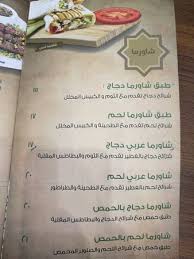 شاورما
طبق شاورما دجاج
١٥
شرائح دجاج تقدم مع الثوم و الكبيس المخلل
طبق شاورما لحم
١٧
شرائح لحم تقدم مع الطحينة و الطراطور
شاورما عربي دجاج
١٧
شرائح دجاج بالفطير تقدم مع الثوم والبطاطس المقلية
شاورما عربي لحم
٢٠
شرائح لحم بالفطير تقدم مع الطحينة والطراطور
شاورما دجاج بالحمص
٢٠
طبق حمص مع شرائح الدجاج والبطاطس المقلية
شاورما لحم بالحمص
٢١
طبق حمص مع شرائح اللحم و الصنوبر المحمص